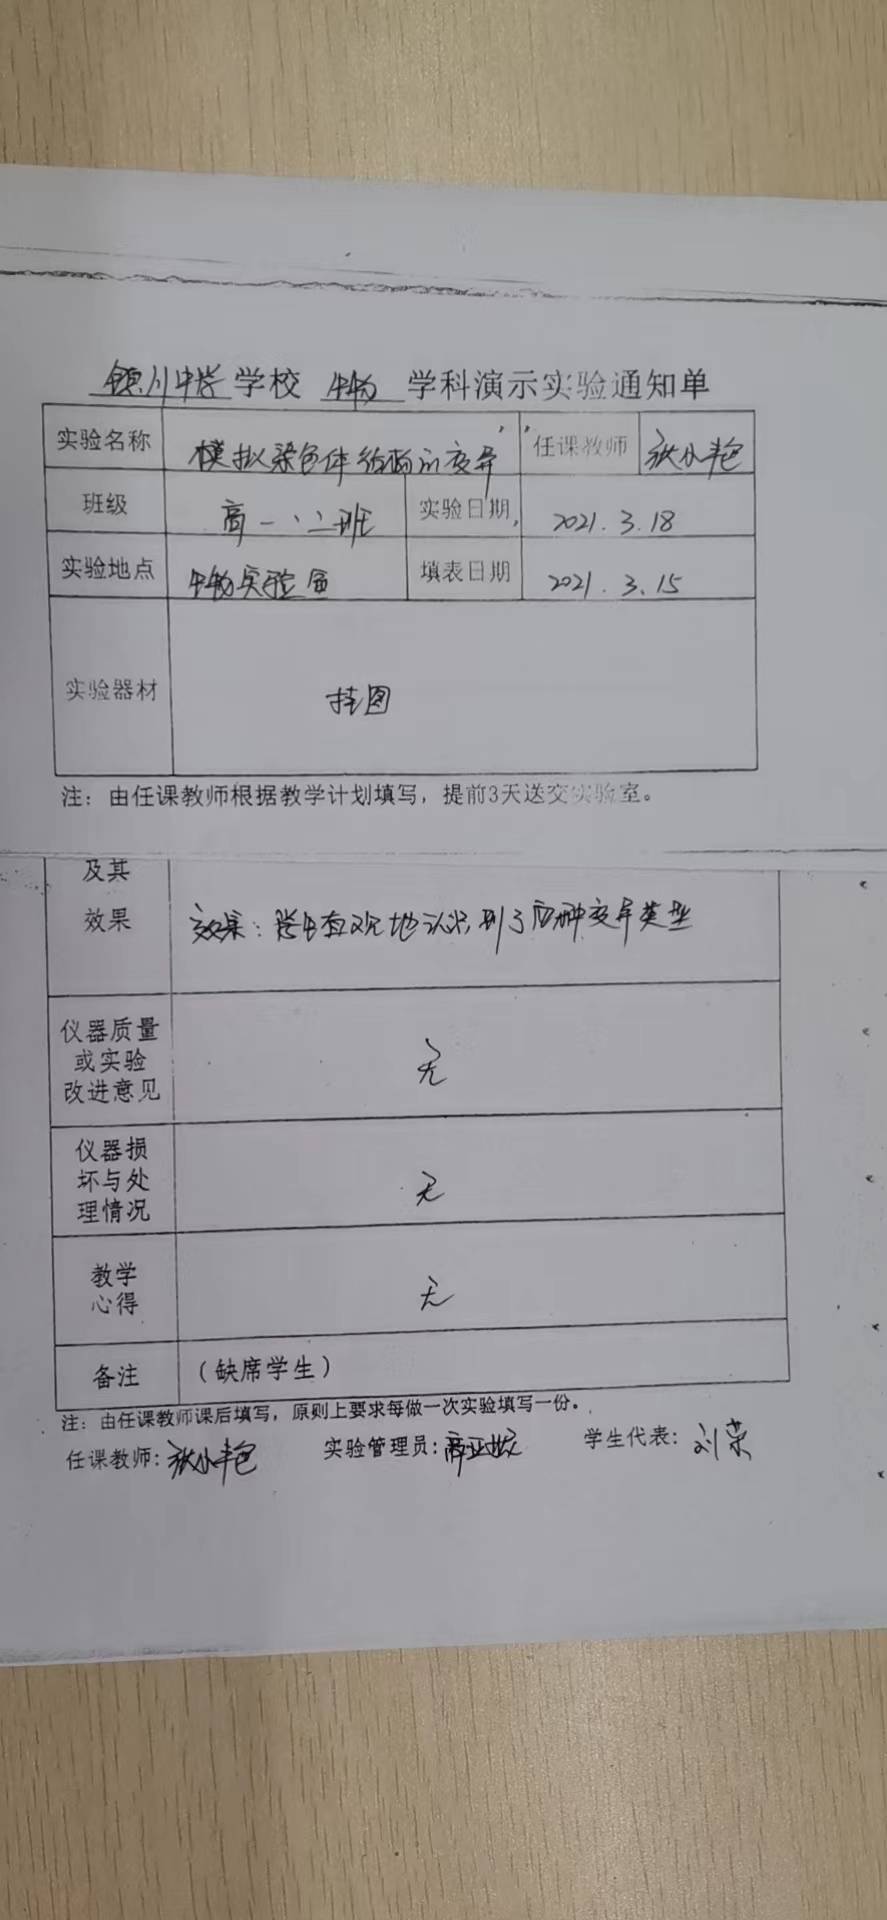 镇川中学学校 生物 学科演示实验通知单
实验名称 模拟染色体结构的变异 任课教师 张小艳
班级 高一、二班 实验日期 2021.3.18
实验地点 生物实验室 填表日期 2021.3.15
实验器材 挂图
注：由任课教师根据教学计划填写，提前3天送交实验室。
及其
效果 效果：学生直观地认识到了四种变异类型
仪器质量
或实验
改进意见 无
仪器损
坏与处
理情况 无
教学
心得 无
备注 （缺席学生）
注：由任课教师课后填写，原则上要求每做一次实验填写一份。
任课教师： 实验管理员： 学生代表：刘荣